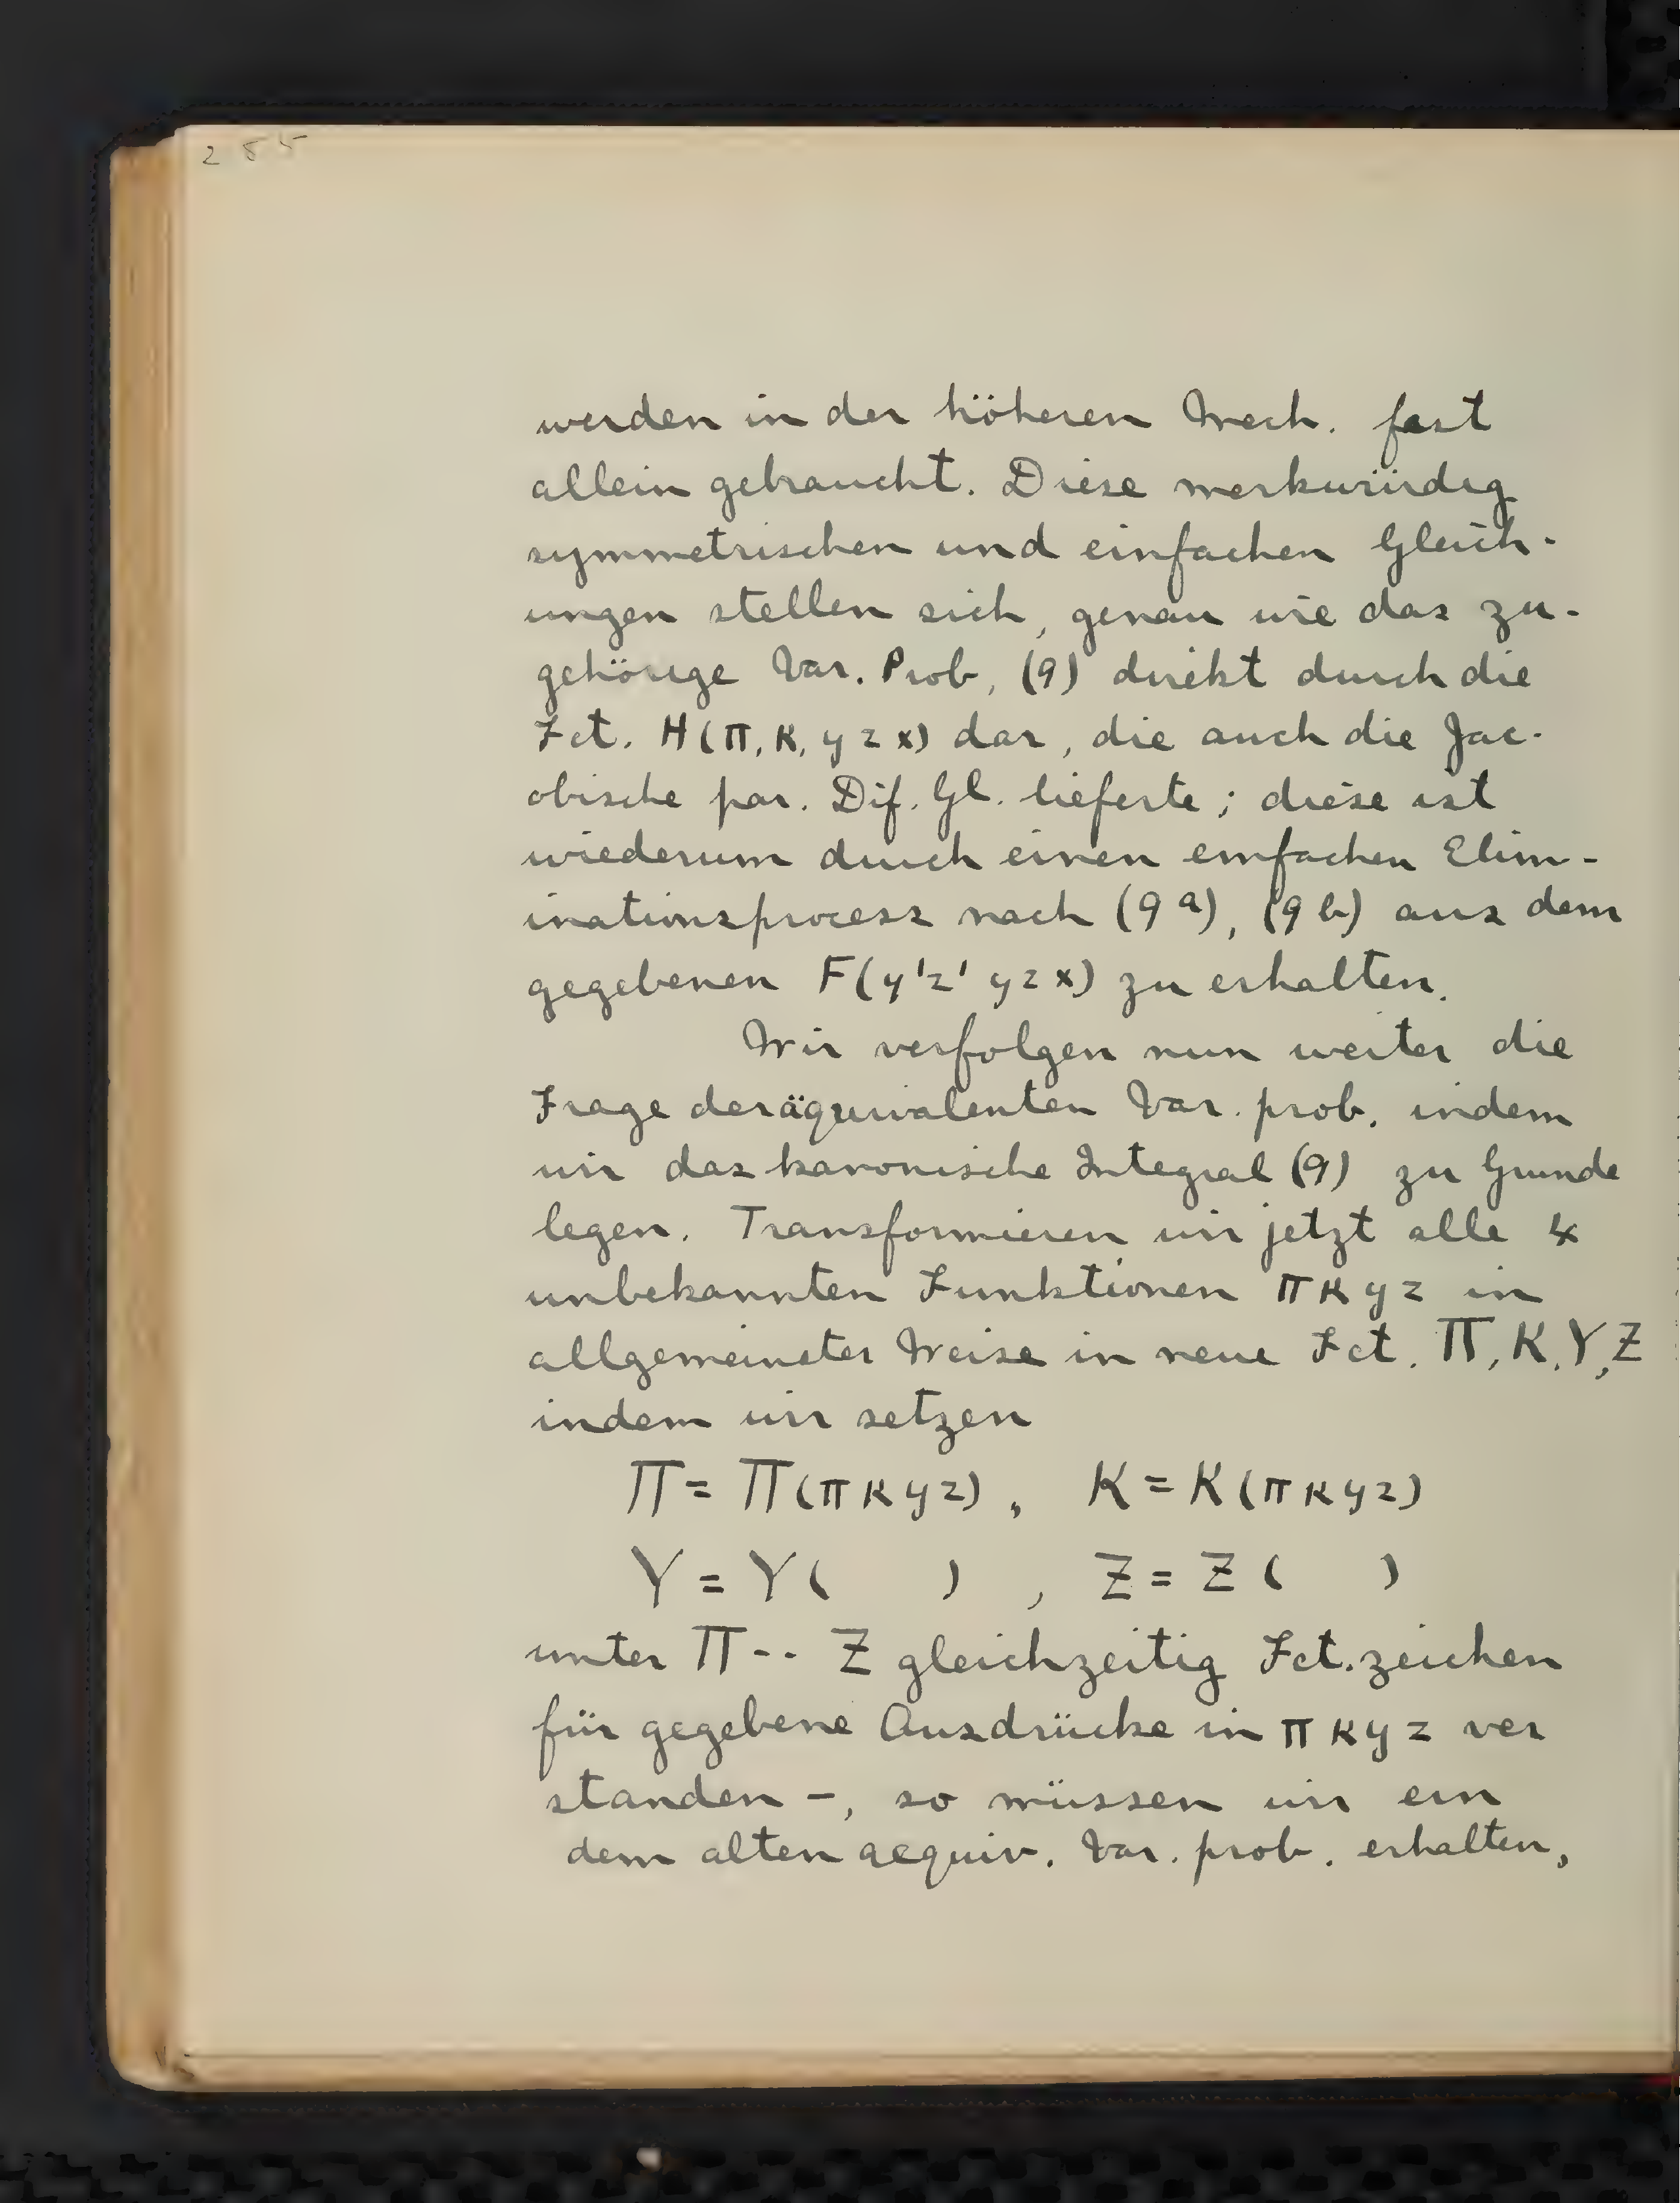 285
werden in der höheren Mech. fast
allein gebraucht. Diese merkwürdig
symmetrischen und einfachen Gleich-
ungen stellen sich, genau wie das zu-
gehörige Var. Prob, (9) direkt durch die
Fct. H(π, κ, y z x) dar, die auch die Jac-
obische par. Dif. Gl. lieferte; diese ist
wiederum durch einen einfachen Elim-
inationsprocess nach (9 a), (9 b) aus dem
gegebenen F(y'z' y z x) zu erhalten.
Wir verfolgen nun weiter die
Frage der äquivalenten Var. prob. indem
wir das kanonische Integral (9) zu Grunde
legen. Transformieren wir jetzt alle 4
unbekannten Funktionen π κ y z in
allgemeinster Weise in neue Fct. Π, K, Y, Z
indem wir setzen
Π = Π(π κ y z), K = K(π κ y z)
Y = Y( ), Z = Z( )
unter Π -- Z gleichzeitig Fct. zeichen
für gegebene Ausdrücke in π κ y z ver
standen -, so müssen wir ein
dem alten aequiv. Var. prob. erhalten,